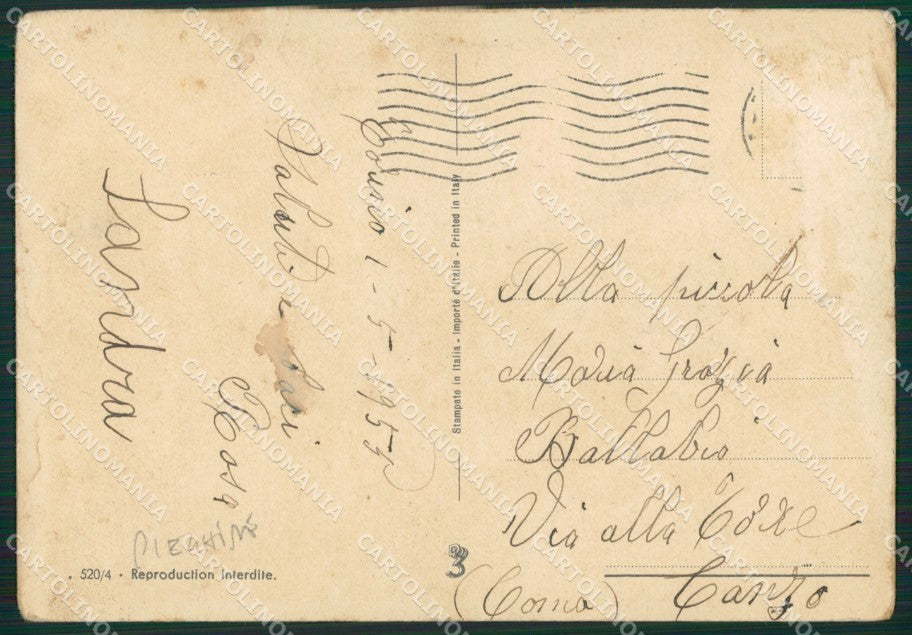 1-5-195
Saluti e baci
Rosa
Sandra
Alla piccola
Maria Grazia
Ballabio
Via alla Torre
Canzo
(Como)
Stampato in Italia - Importé d'Italie - Printed in Italy
3
. 520/4 - Reproduction interdite.
CARTOLINOMANIA